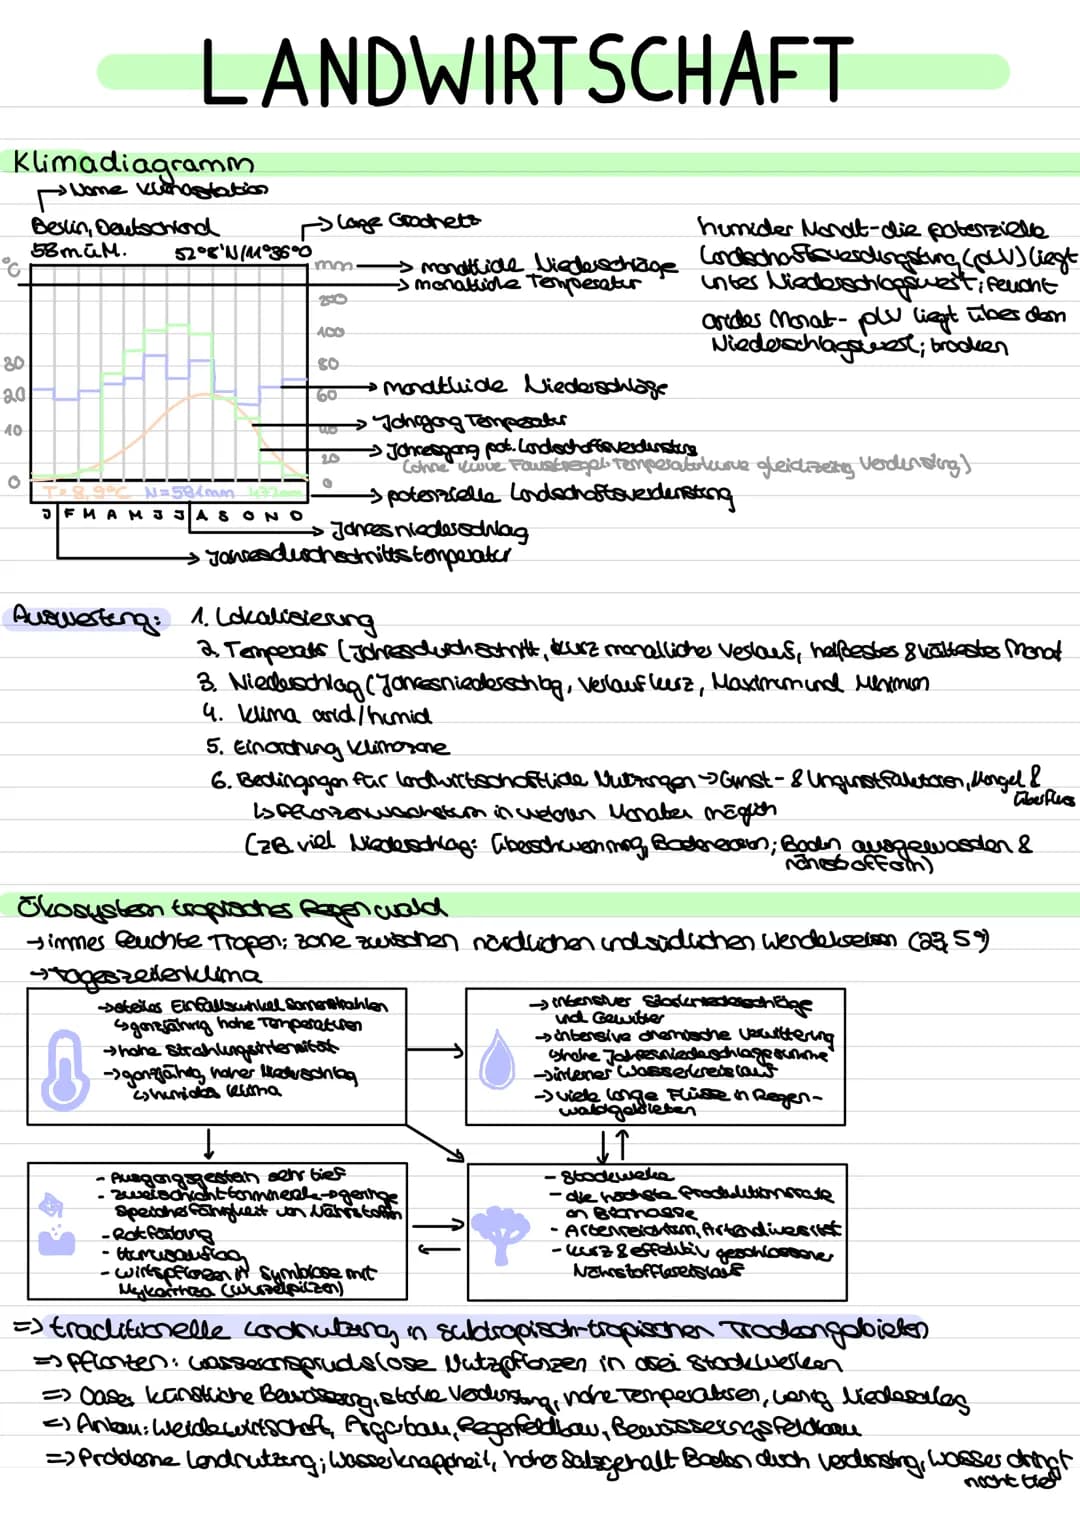 LANDWIRTSCHAFT
Klimadiagramm
→ Name Klimastation
Berlin, Deutschland
→ Lage Gradnetz
58 m ü.M. 52°8'N/11°36°O
°C mm
→ monatliche Niederschläge
→ monatliche Temperatur
humider Monat - die potenzielle
Landschaftsverdunstung (pLV) liegt
unter Niederschlagswert; feucht
arider Monat - pLV liegt über dem
Niederschlagswert; trocken
200
100
30 80
→ monatliche Niederschläge
20 60
→ Jahrgang Temperatur
10 40
→ Jahresgang pot. Landschaftsverdunstung
20
(ohne Kurve Faustregel: Temperaturkurve gleichzeitig Verdunstung)
0 0
T = 8,9°C N=584mm 477mm
→ potenzielle Landschaftsverdunstung
J F M A M J J A S O N D
→ Jahresniederschlag
→ Jahresdurchschnittstemperatur
Auswertung: 1. Lokalisierung
2. Temperatur (Jahresdurchschnitt, kurz monatlicher Verlauf, heißestes & kältestes Monat
3. Niederschlag (Jahresniederschlag, Verlauf kurz, Maximum und Minimum
4. Klima arid/humid
5. Einordnung Klimazone
6. Bedingungen für landwirtschaftliche Nutzungen → Gunst- & Ungunstfaktoren, Mangel &
Überfluss
↳ Pflanzenwachstum in welchen Monaten möglich
(zB viel Niederschlag: Überschwemmung, Bodenerosion; Boden ausgewaschen &
nährstoffarm)
Ökosystem tropischer Regenwald
→ immer feuchte Tropen: Zone zwischen nördlichen und südlichen Wendekreisen (23,5°)
→ Tageszeitenklima
→ steiler Einfallswinkel Sonnenstrahlen
↳ ganzjährig hohe Temperaturen
→ hohe Strahlungsintensität
→ ganzjährig hoher Niederschlag
↳ humides Klima
→ intensiver Starkniederschläge
und Gewitter
→ intensive chemische Verwitterung
↳ hohe Jahresniederschlagssumme
→ interner Wasserkreislauf
→ viele lange Flüsse in Regen-
waldgebieten
- Ausgangsgestein sehr tief
- zweischichttonminerale → geringe
Speicherfähigkeit von Nährstoffen
- Rotfärbung
- Humusauflag
- Wirtspflanzen in Symbiose mit
Mykorrhiza (Wurzelpilzen)
- Stockwerke
- die höchste Produktionsrate
an Biomasse
- Artenreichtum, Artendiversität
- kurz & effektiv geschlossener
Nährstoffkreislauf
=> traditionelle Landnutzung in subtropisch-tropischen Trockengebieten
=> Pflanzen: wasseranspruchslose Nutzpflanzen in drei Stockwerken
=> Oase: künstliche Bewässerung, starke Verdunstung, hohe Temperaturen, wenig Niederschlag
=> Anbau: Weidewirtschaft, Regenfeldbau, Bewässerungsfeldbau
=> Probleme Landnutzung; Wasserknappheit, hoher Salzgehalt Boden durch Verdunstung, Wasser dringt
nicht tief